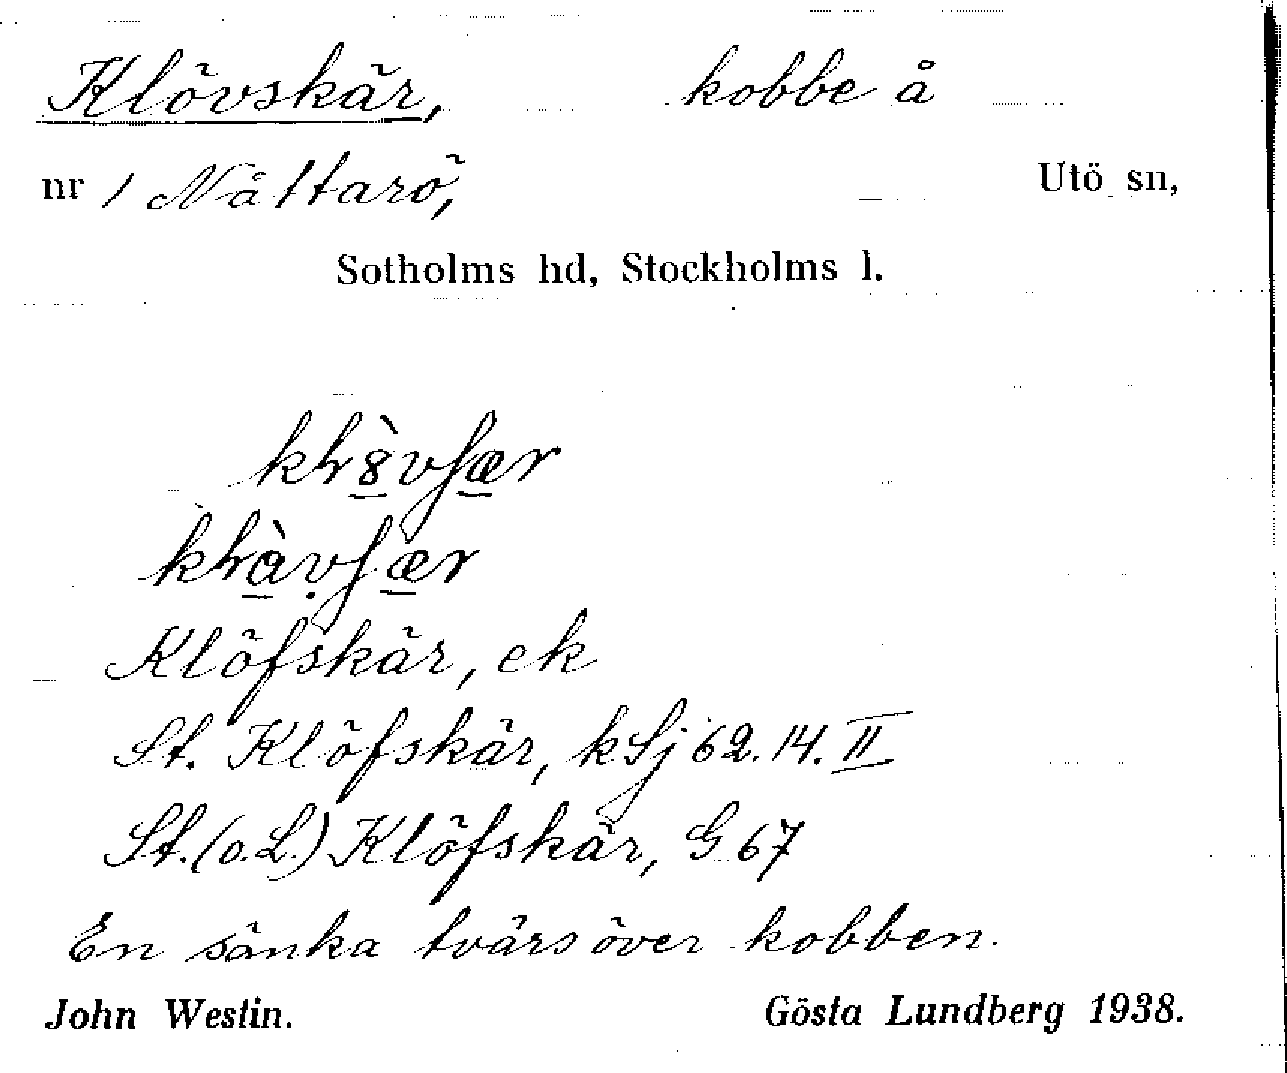 Klövskär, kobbe å
nr 1 Nåttarö, Utö sn,
Sotholms hd, Stockholms l.
Klöfskär, ek
St. Klöfskär, kSj 62.14.II
St. (o. L.) Klöfskär, G 67
En sänka tvärs över kobben.
John Westin. Gösta Lundberg 1938.